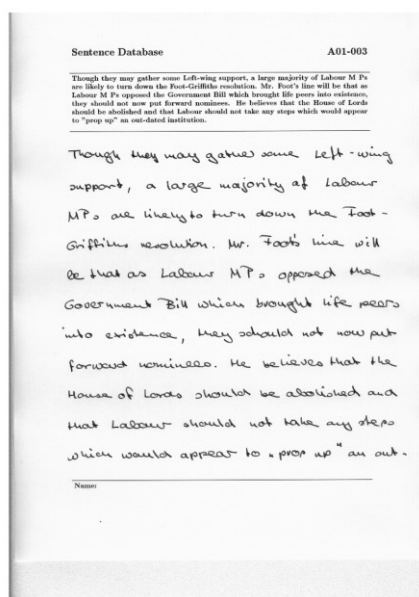 Sentence Database A01-003
Though they may gather some Left-wing support, a large majority of Labour M Ps
are likely to turn down the Foot-Griffiths resolution. Mr. Foot's line will be that as
Labour M Ps opposed the Government Bill which brought life peers into existence,
they should not now put forward nominees. He believes that the House of Lords
should be abolished and that Labour should not take any steps which would appear
to "prop up" an out-dated institution.
Though they may gather some Left-wing
support, a large majority of Labour
MPs are likely to turn down the Foot-
Griffiths resolution. Mr. Foot's line will
be that as Labour MPs opposed the
Government Bill which brought life peers
into existence, they should not now put
forward nominees. He believes that the
House of Lords should be abolished and
that Labour should not take any steps
which would appear to „prop up" an out-
Name: